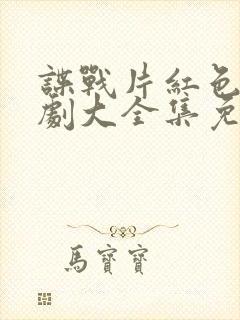 諜戰片紅色
劇大全集免
馬寶寶